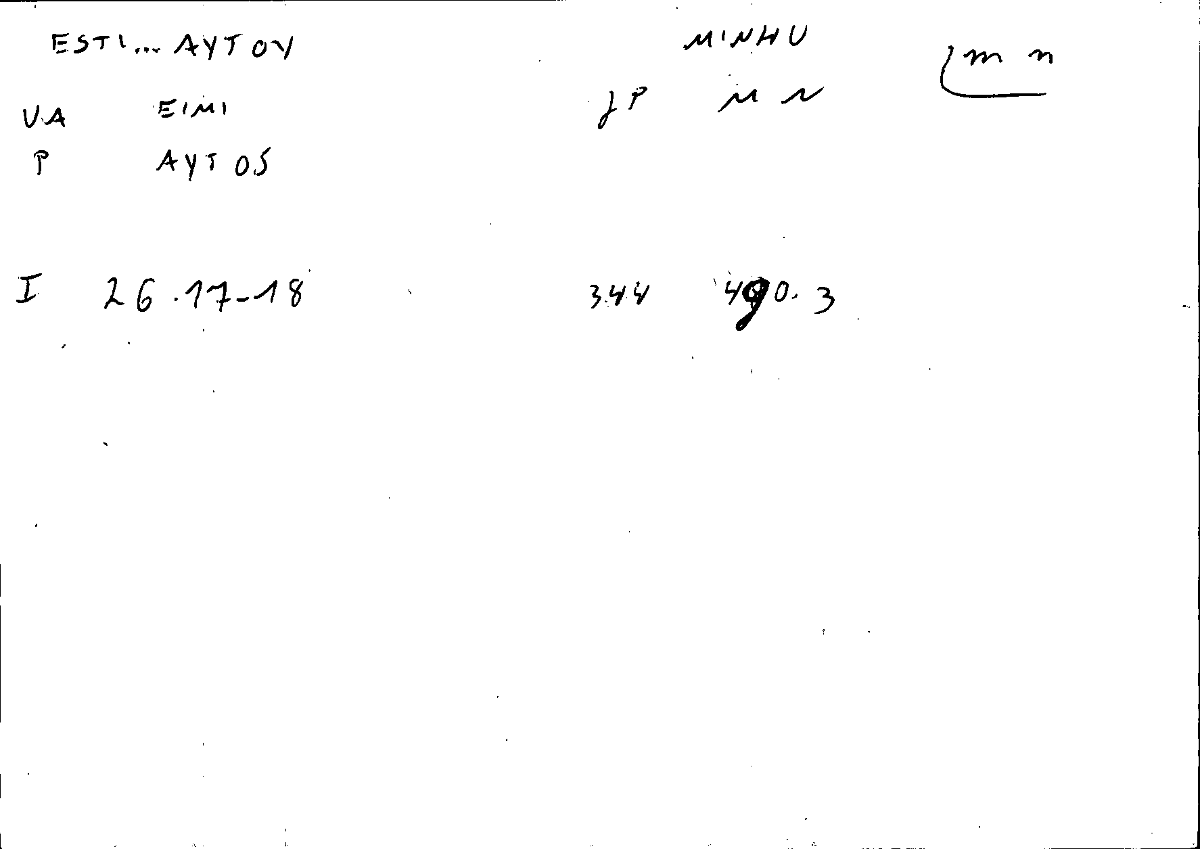 ESTI... AYTOY MINHU
m n
VA EIMI JP M N
P AYTOS
I 26.17-18 344 490.3